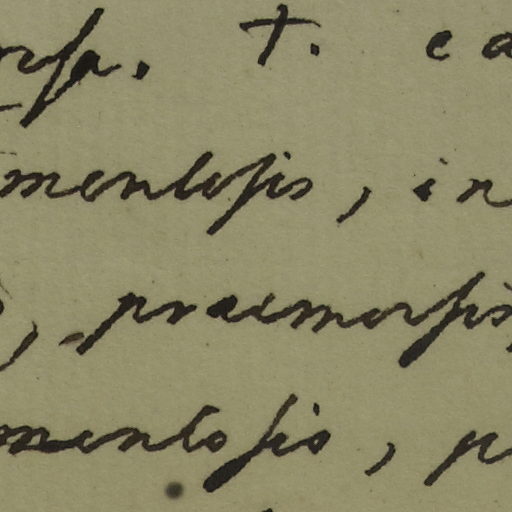 rſa. T. ca
mentoſis, in
, praemorſis
mentoſis, p